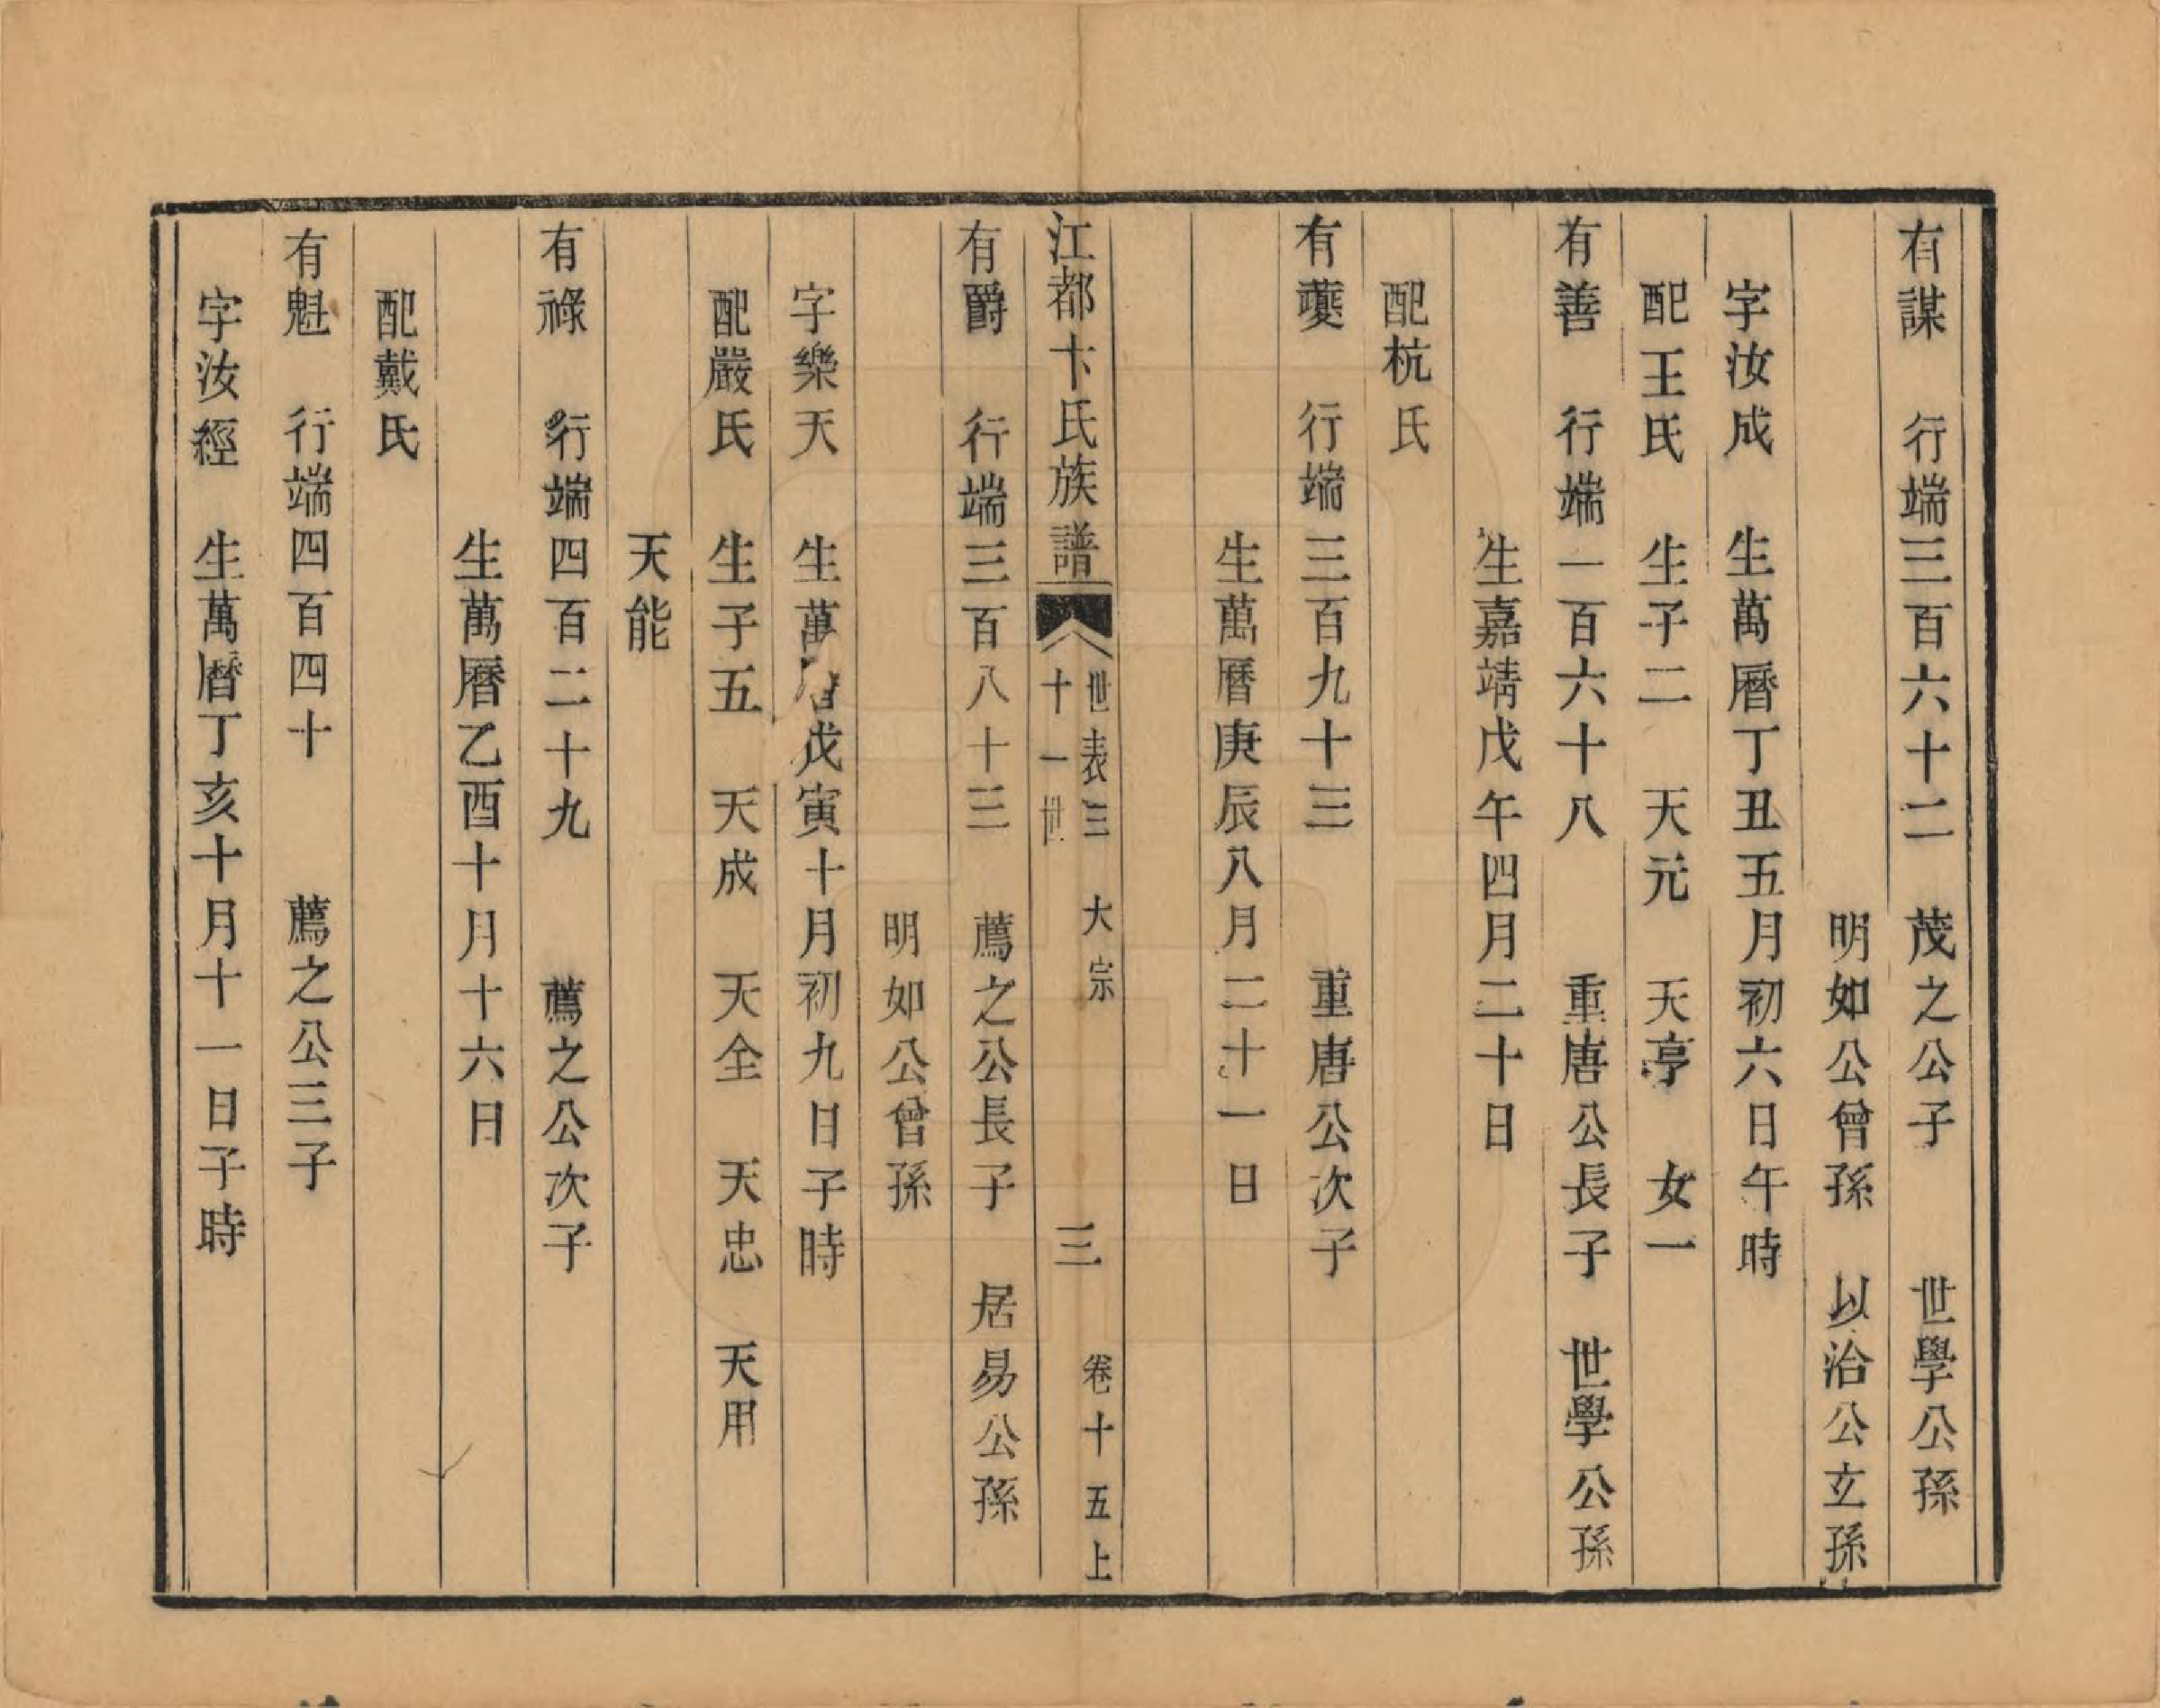 有謀　行端三百六十二　茂之公子　世學公孫
明如公曾孫　以治公玄孫
字汝成　生萬曆丁丑五月初六日午時
配王氏　生子二　天元　天亭　女一
有善　行端一百六十八　重唐公長子　世學公孫
生嘉靖戊午四月二十日
配杭氏
有夔　行端三百九十三　重唐公次子
生萬曆庚辰八月二十一日
江都卞氏族譜　世表三　大宗　卷十五上
十一世　三
有爵　行端三百八十三　薦之公長子　居易公孫
明如公曾孫
字樂天　生萬曆戊寅十月初九日子時
配嚴氏　生子五　天成　天全　天忠　天用
天能
有祿　行端四百二十九　薦之公次子
生萬曆乙酉十月十六日
配戴氏
有魁　行端四百四十　薦之公三子
字汝經　生萬曆丁亥十月十一日子時